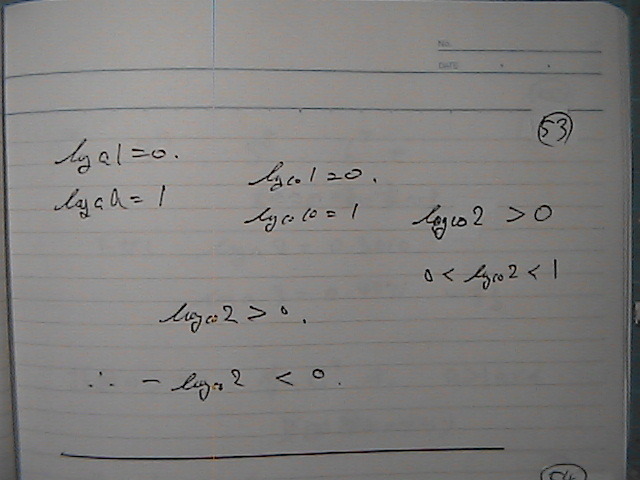 No.
DATE
53
log a 1 = 0.
log₁₀ 1 = 0.
log a a = 1
log₁₀ 10 = 1
log₁₀ 2 > 0
0 < log₁₀ 2 < 1
log₁₀ 2 > 0.
∴ - log₁₀ 2 < 0.